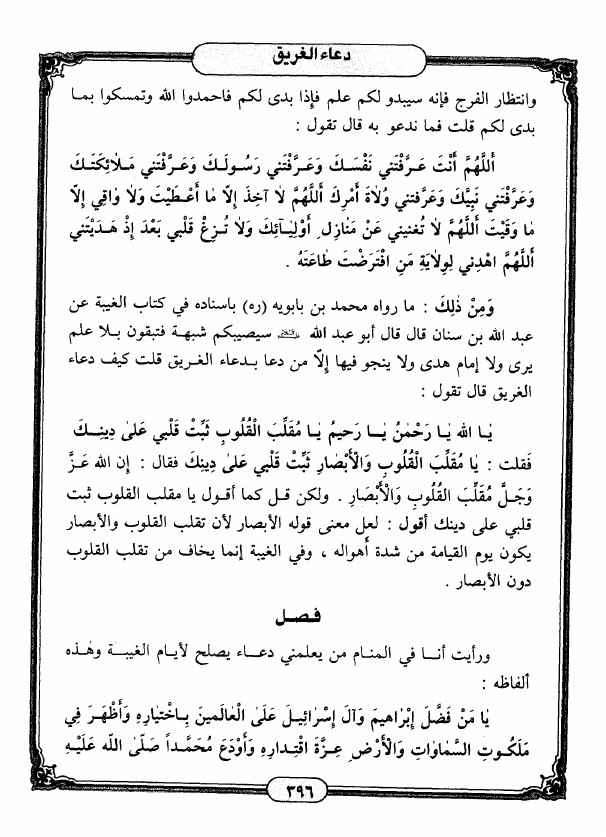 دعاء الغريق
وانتظار الفرج فإنه سيبدو لكم علم فإذا بدى لكم فاحمدوا الله وتمسكوا بما
بدى لكم قلت فما ندعو به قال تقول :
أَللّٰهُمَّ أَنْتَ عَرَّفْتَني نَفْسَكَ وَعَرَّفْتَني رَسُولَكَ وَعَرَّفْتَني مَلٰائِكَتَكَ
وَعَرَّفْتَني نَبِيَّكَ وَعَرَّفتني وُلٰاةَ أَمْرِكَ أَللّٰهُمَّ لٰا آخِذَ إِلّاَ مٰا أَعْطَيْتَ وَلٰا وٰاقِي إِلّا
مٰا وَقَيْتَ أَللّٰهُمَّ لٰا تُغنيني عَنْ مَنٰازِلِ أَوْلِيٰآئِكَ وَلٰا تُزِغْ قَلْبي بَعْدَ إِذْ هَدَيْتَني
أَللّٰهُمَّ اهْدِني لِولٰايَةِ مَنِ افْتَرَضْتَ طٰاعَتَهُ .
وَمِنْ ذٰلِكَ : ما رواه محمد بن بابويه (ره) باسناده في كتاب الغيبة عن
عبد الله بن سنان قال قال أبو عبد الله سيصيبكم شبهة فتبقون بلا علم
يرى ولا إمام هدى ولا ينجو فيها إلّا من دعا بدعاء الغريق قلت كيف دعاء
الغريق قال تقول :
يٰا الله يٰا رَحْمٰنُ يٰا رَحيمُ يٰا مُقَلِّبَ الْقُلُوبِ ثَبِّتْ قَلْبي عَلىٰ دِينِكَ
فَقلت : يٰا مُقَلِّبَ الْقُلُوبِ وَالْأَبْصٰارِ ثَبِّتْ قَلْبي عَلىٰ دِينِكَ فقال : إن الله عَزَّ
وَجَلَّ مُقَلِّبَ القُلُوبِ وَالْأَبْصٰارِ . ولكن قل كما أقول يا مقلب القلوب ثبت
قلبي على دينك أقول : لعل معنى قوله الأبصار لأن تقلب القلوب والأبصار
يكون يوم القيامة من شدة أهواله ، وفي الغيبة إنما يخاف من تقلب القلوب
دون الأبصار .
فصل
ورأيت أنا في المنام من يعلمني دعاء يصلح لأيام الغيبة وهذه
ألفاظه :
يٰا مَنْ فَضَّلَ إِبْراهيمَ وَآلَ إِسْرائيلَ عَلَى الْعٰالَمينَ بِاخْتِيٰارِهِ وَأَظْهَرَ فِي
مَلَكُوتِ السَّمٰاوٰاتِ وَالْأَرْضِ عِزَّةَ اقْتِدارِهِ وَأَوْدَعَ مُحَمَّداً صَلَّى اللّه عَلَيْهِ
٣٩٦